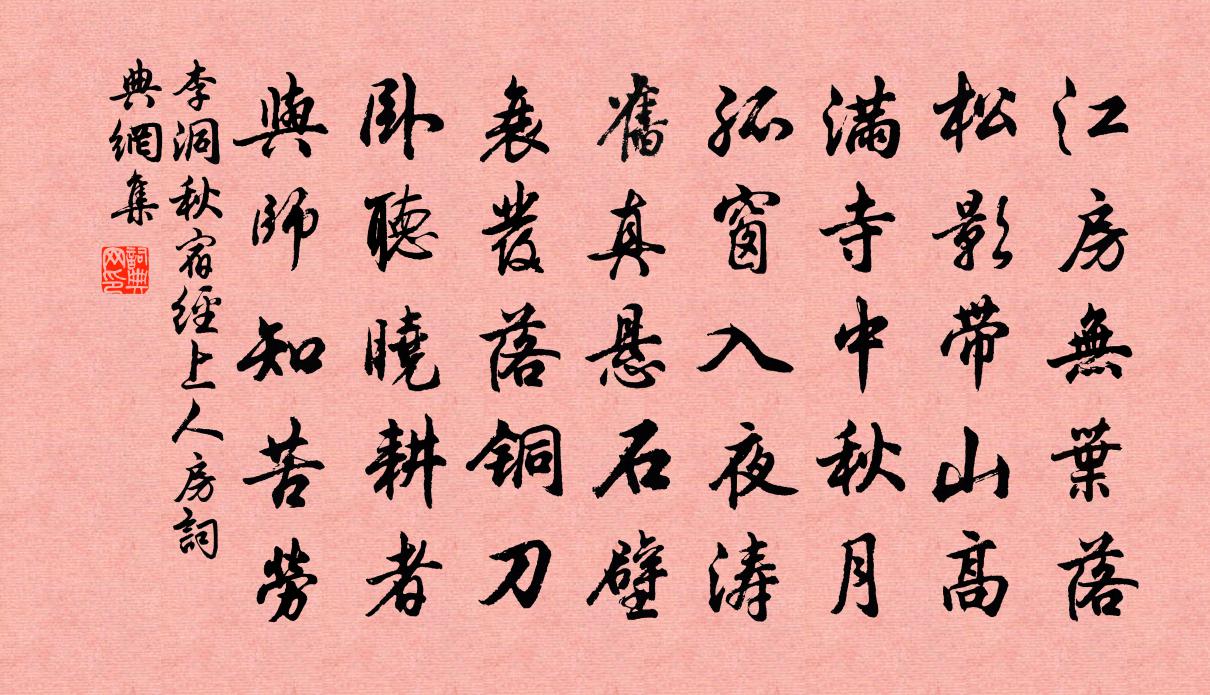 江房無葉落
松影带山高
滿寺中秋月
孤窗入夜涛
舊真悬石壁
衰发落铜刀
卧聽曉耕者
與師知苦勞
李洞秋宿經上人房詞
典網集
詞典
网印